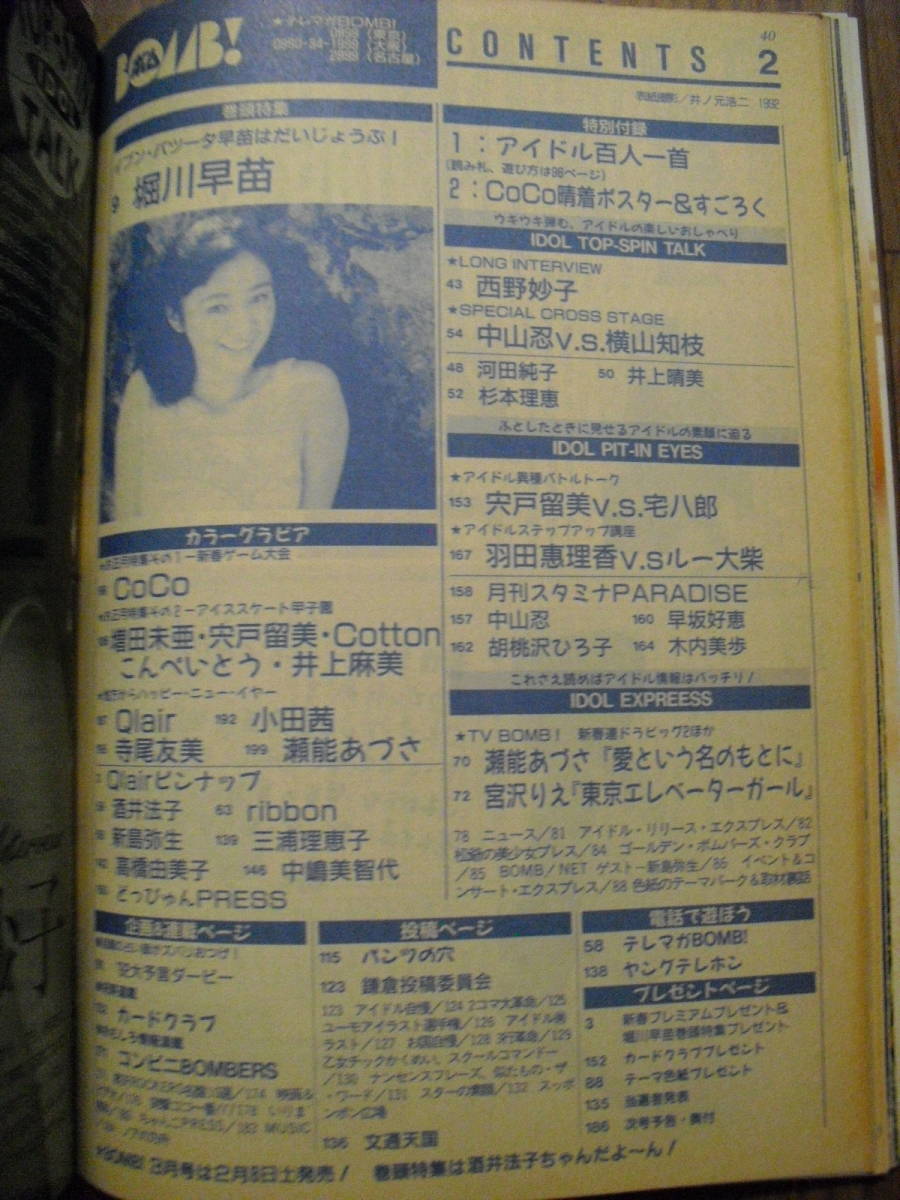 BOMB!
★テレマガBOMB!
(東京)
(大阪)
(名古屋)
CONTENTS
40
2
表紙撮影/井ノ元浩二 1992
巻頭特集
早苗はだいじょうぶ!
9 堀川早苗
特別付録
1:アイドル百人一首
(読み札、遊び方は96ページ)
2:CoCo晴着ポスター&すごろく
ウキウキ弾む、アイドルの楽しいおしゃべり
IDOL TOP-SPIN TALK
★LONG INTERVIEW
43 西野妙子
★SPECIAL CROSS STAGE
54 中山忍V.S.横山知枝
48 河田純子 50 井上晴美
52 杉本理恵
ふとしたときに見せるアイドルの素顔に迫る
IDOL PIT-IN EYES
★アイドル異種バトルトーク
153 宍戸留美V.S.宅八郎
★アイドルステップアップ講座
167 羽田惠理香V.Sルー大柴
158 月刊スタミナPARADISE
157 中山忍 160 早坂好恵
162 胡桃沢ひろ子 164 木内美歩
これさえ読めばアイドル情報はバッチリ!
IDOL EXPREESS
★TV BOMB! 新春連ドラビッグ2ほか
70 瀬能あづさ『愛という名のもとに』
72 宮沢りえ『東京エレベーターガール』
78 ニュース/81 アイドル・リリース・エクスプレス/82
松爺の美少女プレス/84 ゴールデン・ボムバーズ・クラブ
/85 BOMB/NET ゲスト−新島弥生/86 イベント&コ
ンサート・エクスプレス/88 色紙のテーマパーク&取材裏話
カラーグラビア
正月特集その1−新春ゲーム大会
CoCo
正月特集その2−アイススケート甲子園
増田未亜・宍戸留美・Cotton
こんぺいとう・井上麻美
ハッピー・ニュー・イヤー
Qlair 192 小田茜
寺尾友美 199 瀬能あづさ
Qlairピンナップ
酒井法子 63 ribbon
新島弥生 139 三浦理恵子
高橋由美子 146 中嶋美智代
とっぴゅんPRESS
企画&連載ページ
大予言ダービー
カードクラブ
コンビニBOMBERS
投稿ページ
115 パンツの穴
123 鎌倉投稿委員会
123 アイドル自慢/124 2コマ大革命/125
ユーモアイラスト選手権/126 アイドル美
ラスト/127 お国自慢/128 3行革命/129
乙女チックかくめい、スクールコマンドー
/130 ナンセンスフレーズ、似たもの・ザ
・ワード/131 スターの素顔/132 スッポ
ンポン広場
136 文通天国
電話で遊ぼう
58 テレマガBOMB!
138 ヤングテレホン
プレゼントページ
3 新春プレミアムプレゼント&
堀川早苗巻頭特集プレゼント
152 カードクラブプレゼント
88 テーマ色紙プレゼント
135 当選者発表
186 次号予告・奥付
★BOMB! 3月号は2月8日土発売! 巻頭特集は酒井法子ちゃんだよ〜ん!